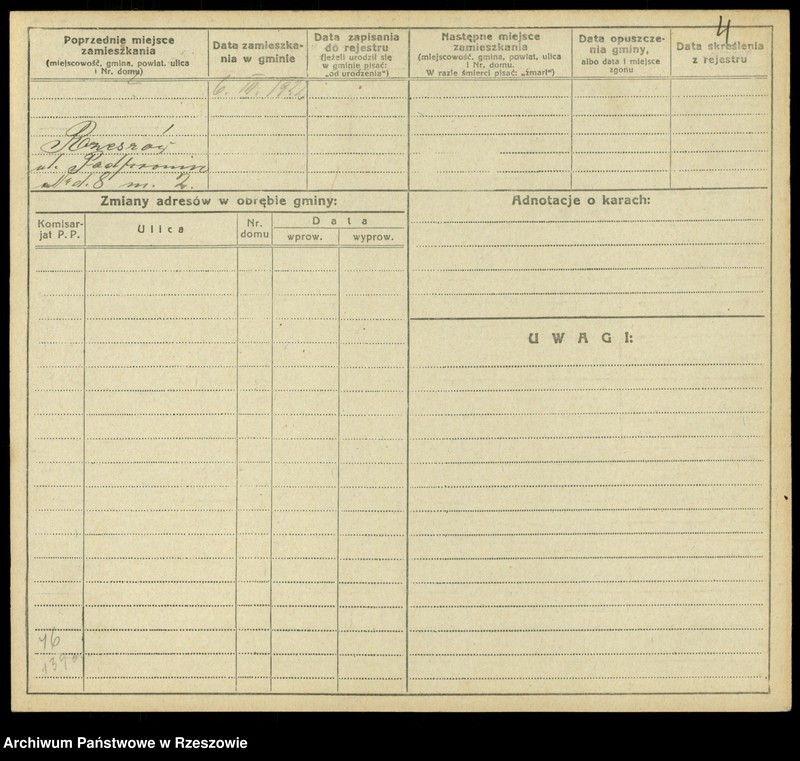 4
Poprzednie miejsce
zamieszkania
(miejscowość, gmina, powiat, ulica
i Nr. domu)
Data zamieszka-
nia w gminie
Data zapisania
do rejestru
(jeżeli urodził się
w gminie pisać:
„od urodzenia")
Następne miejsce
zamieszkania
(miejscowość, gmina, powiat, ulica
i Nr. domu.
W razie śmierci pisać: „zmarł")
Data opuszcze-
nia gminy,
albo data i miejsce
zgonu
Data skreślenia
z rejestru
Rzeszów
ul.
Nr d. 8 m. 2.
Zmiany adresów w obrębie gminy:
Komisar-
jat P. P.
Ulica
Nr.
domu
Data
wprow.
wyprow.
Adnotacje o karach:
UWAGI:
Archiwum Państwowe w Rzeszowie